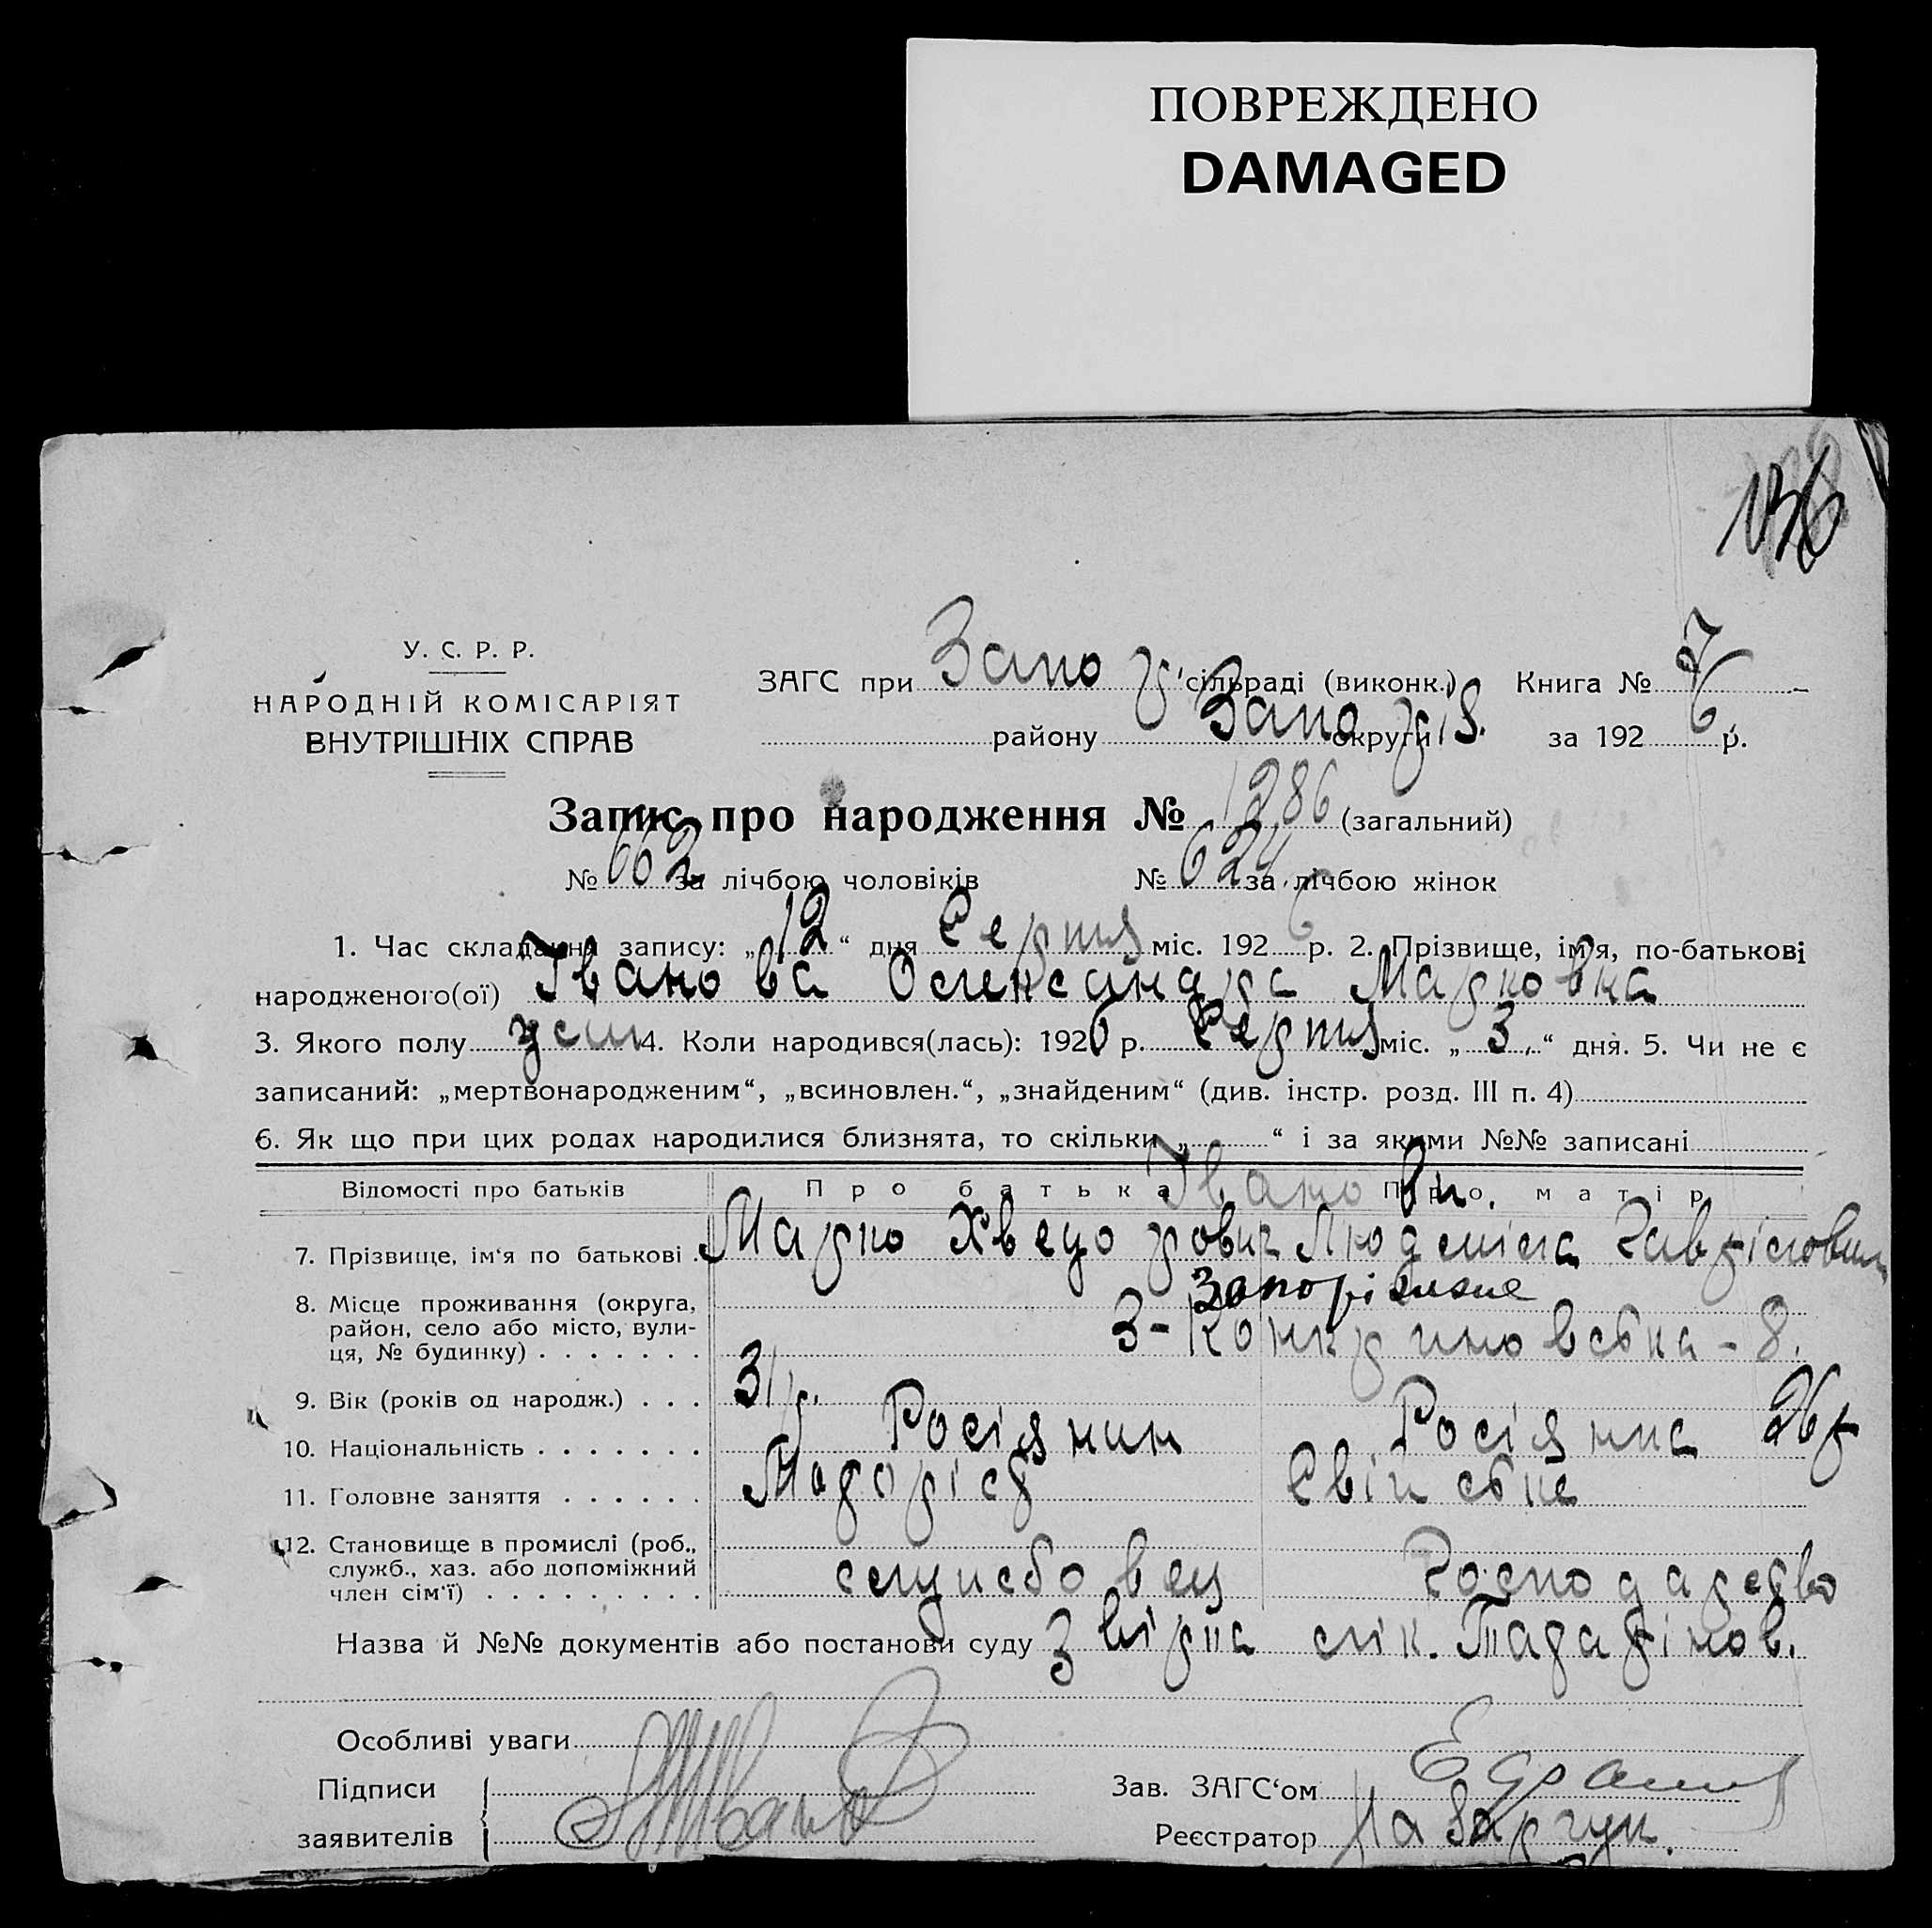 ПОВРЕЖДЕНО
DAMAGED
136
У. С. Р. Р.
НАРОДНІЙ КОМІСАРІЯТ
ВНУТРІШНІХ СПРАВ
ЗАГС при Запоріз. сільраді (виконк.) Книга № 7
району Запоріз. округи за 1926 р.
Запис про народження № 1286 (загальний)
№ 662 за лічбою чоловіків № 624 за лічбою жінок
1. Час складання запису: „12“ дня Серпня міс. 1926 р. 2. Прізвище, ім'я, по-батькові
народженого(ої) Іванова Олександра Марковна
3. Якого полу жін 4. Коли народився(лась): 1926 р. Серпня міс. „3“ дня. 5. Чи не є
записаний: „мертвонародженим“, „всиновлен.“, „знайденим“ (див. інстр. розд. III п. 4)
6. Як що при цих родах народилися близнята, то скільки „ “ і за якими №№ записані
Відомості про батьків Про батька Про матір
Іванови.
7. Прізвище, ім'я по батькові . Марко Хведорович Людміла Гаврілов
8. Місце проживання (округа, Запоріжжя
район, село або місто, вули-
ця, № будинку) . . . . . . . - 8.
9. Вік (років од народж.) . . . 31 р. 26 р
10. Національність . . . . . . . Росіянин Росіянка
11. Головне заняття . . . . . .
12. Становище в промислі (роб.,
служб., хаз. або допоміжний
член сім'ї) . . . . . . . . . службовец Господарство
Назва й №№ документів або постанови суду лік.
Особливі уваги
Підписи Зав. ЗАГС'ом
заявителів Реєстратор